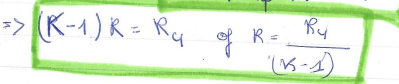 => (K-1) R = R₄ of R = R₄/(K-1)